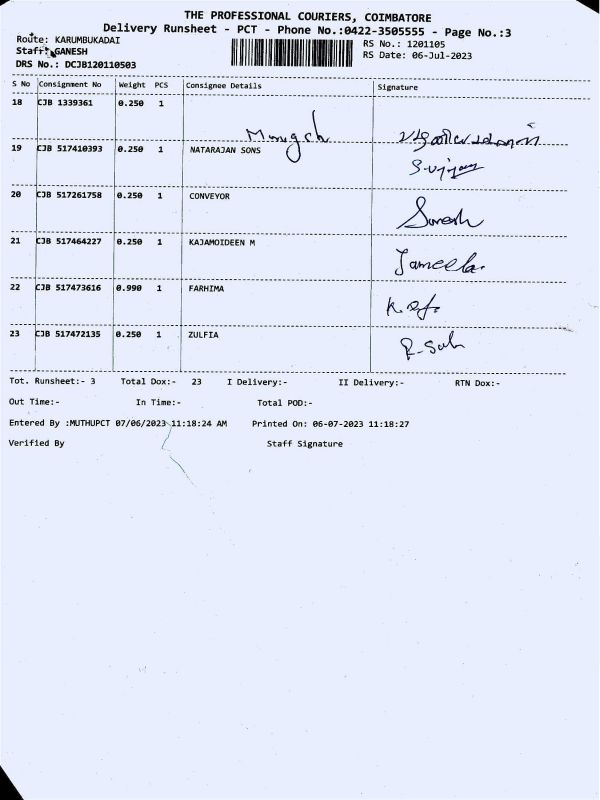 THE PROFESSIONAL COURIERS, COIMBATORE
Delivery Runsheet - PCT - Phone No.:0422-3505555 - Page No.:3
Route: KARUMBUKADAI
RS No.: 1201105
Staff: GANESH
RS Date: 06-Jul-2023
DRS No.: DCJB120110503
S No Consignment No Weight PCS Consignee Details Signature
18 CJB 1339361 0.250 1
19 CJB 517410393 0.250 1 NATARAJAN SONS
20 CJB 517261758 0.250 1 CONVEYOR
Suresh
21 CJB 517464227 0.250 1 KAJAMOIDEEN M
Jameela.
22 CJB 517473616 0.990 1 FARHIMA
23 CJB 517472135 0.250 1 ZULFIA
Tot. Runsheet:- 3 Total Dox:- 23 I Delivery:- II Delivery:- RTN Dox:-
Out Time:- In Time:- Total POD:-
Entered By :MUTHUPCT 07/06/2023 11:18:24 AM Printed On: 06-07-2023 11:18:27
Verified By Staff Signature